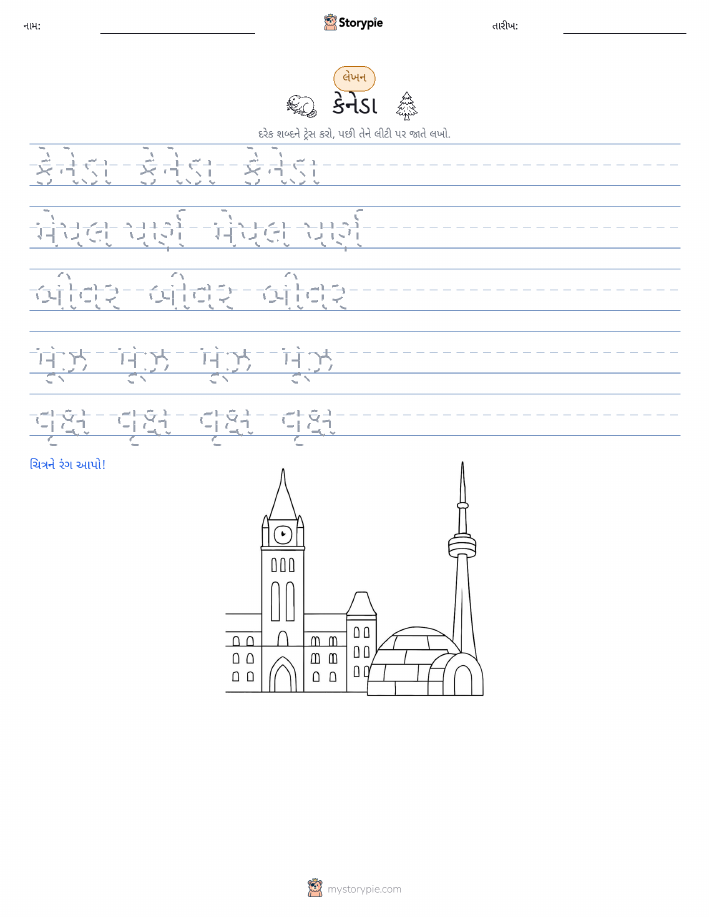 નામ:
Storypie
તારીખ:
લેખન
કેનેડા
દરેક શબ્દને ટ્રેસ કરો, પછી તેને લીટી પર જાતે લખો.
કેનેડા કેનેડા કેનેડા
મેપલ પર્ણ મેપલ પર્ણ
બીવર બીવર બીવર
મૂઝ મૂઝ મૂઝ મૂઝ
વૃક્ષ વૃક્ષ વૃક્ષ વૃક્ષ
ચિત્રને રંગ આપો!
mystorypie.com